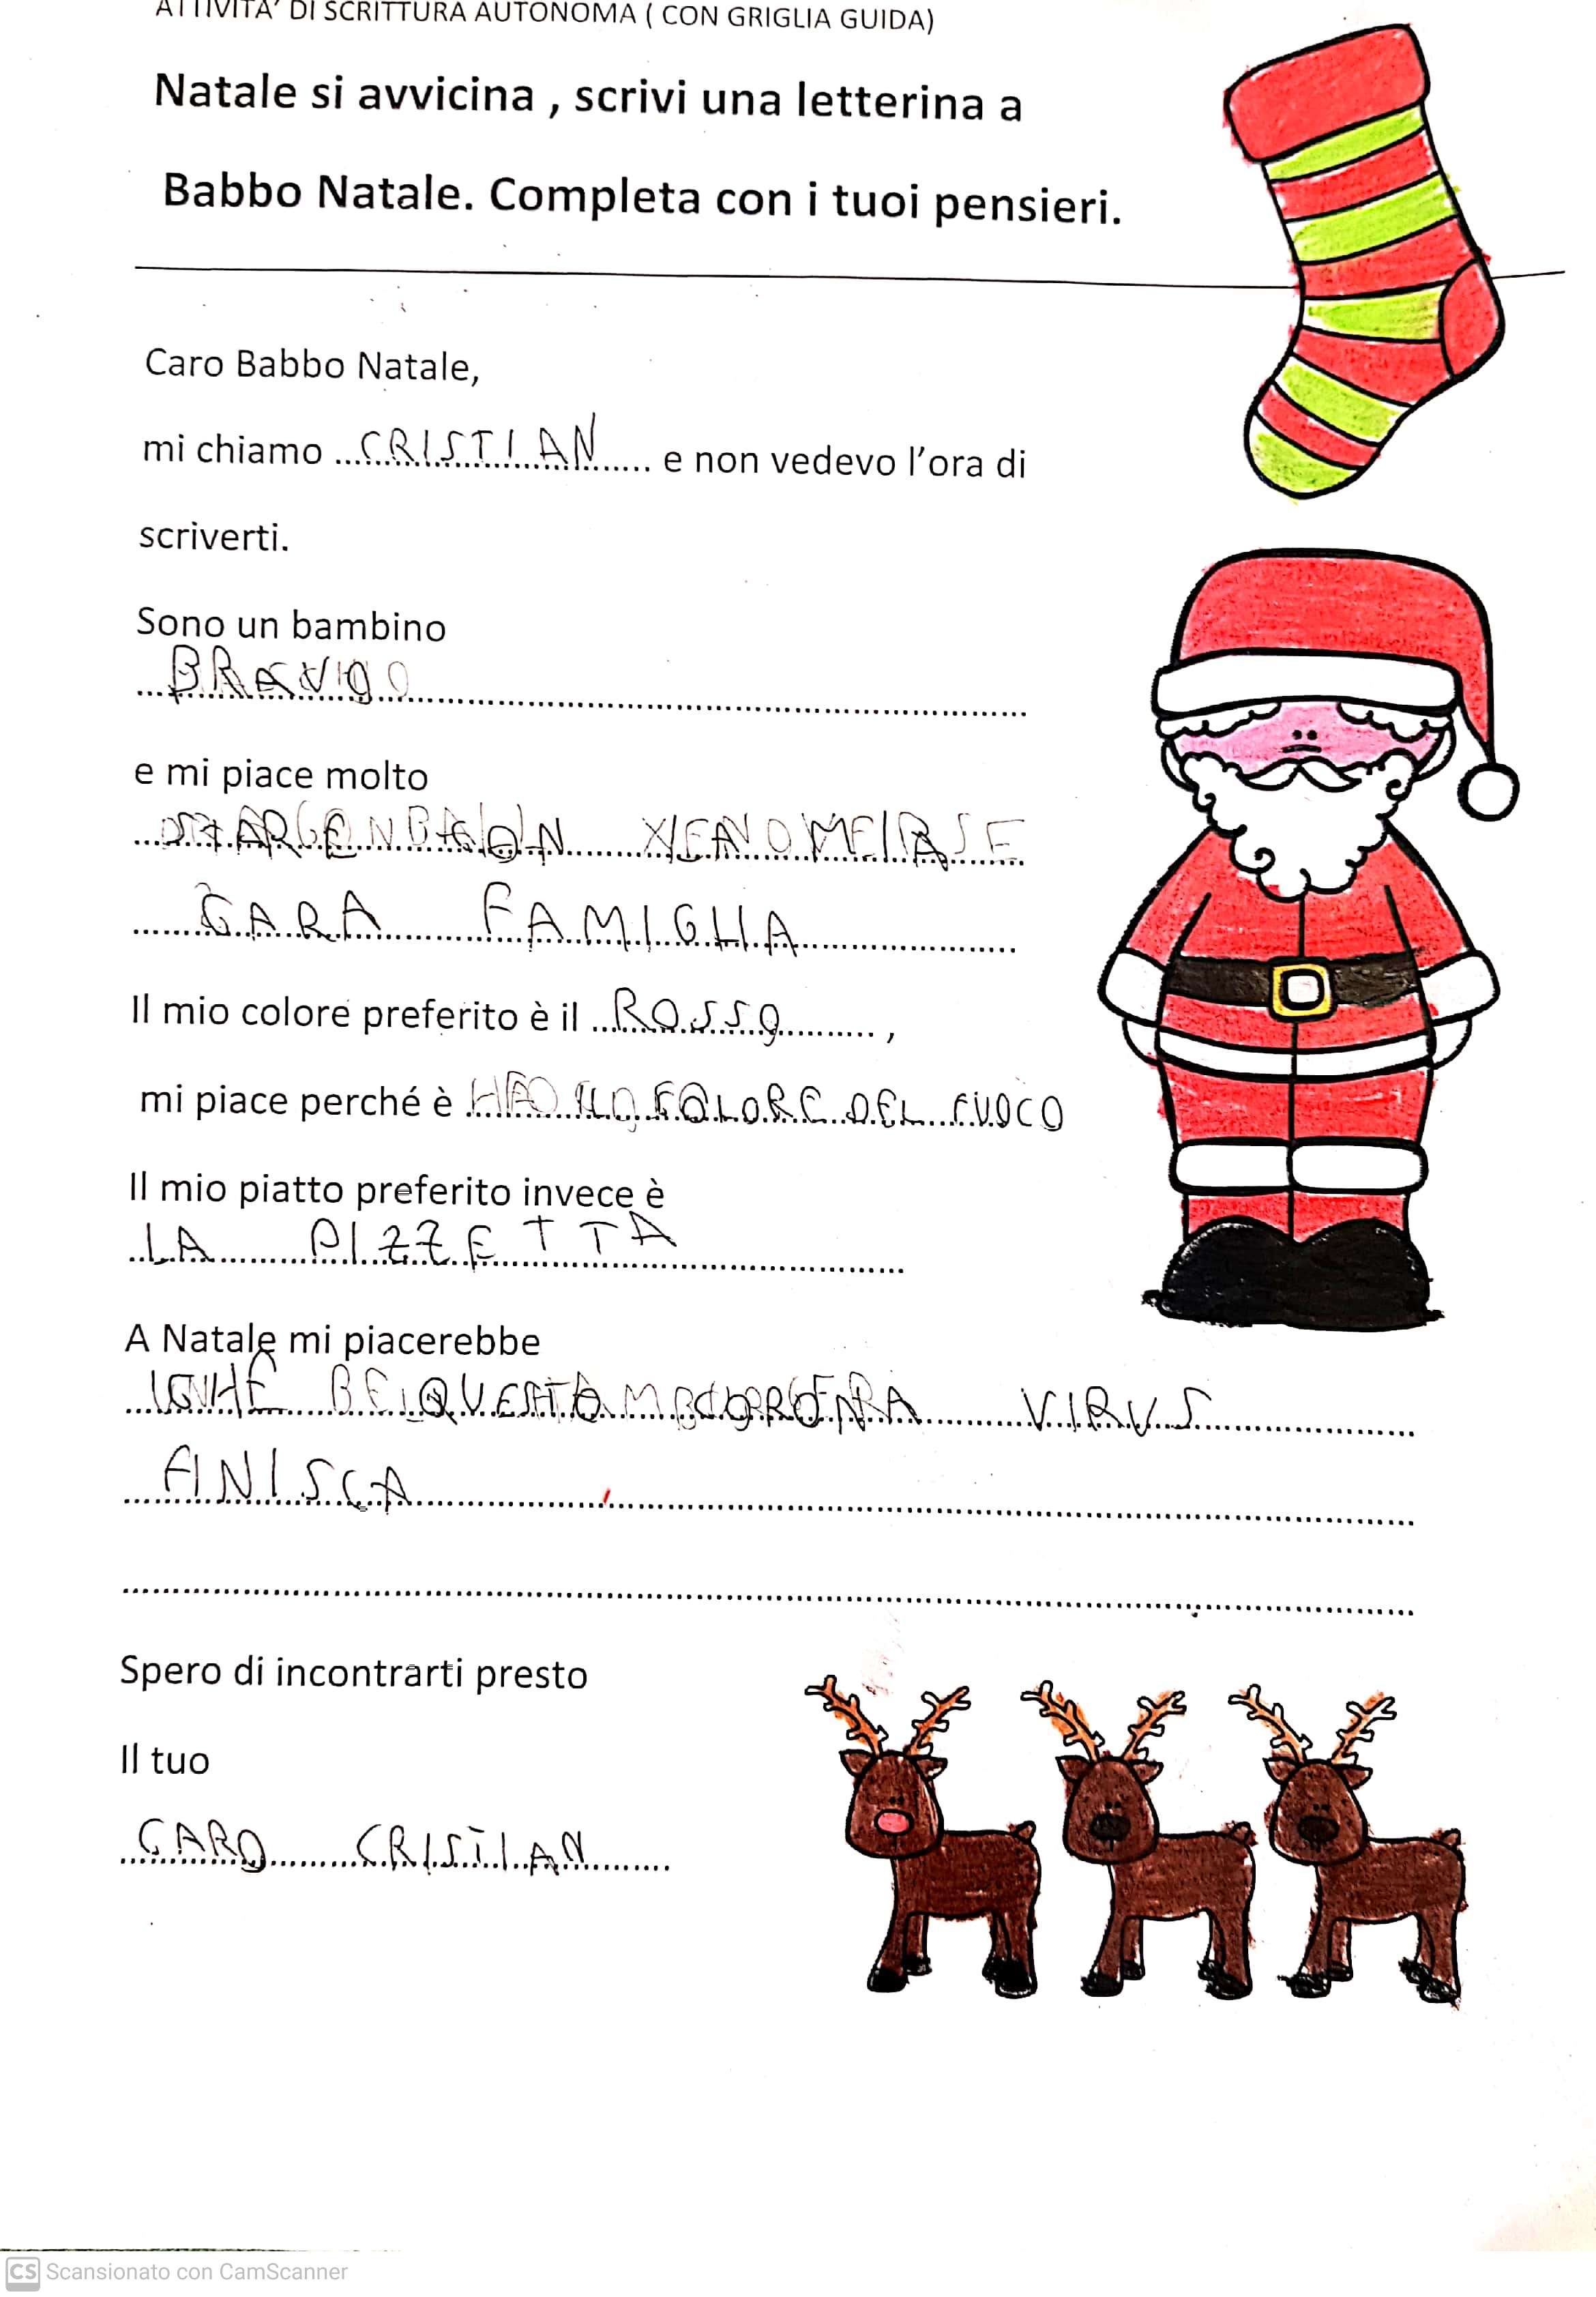 ATTIVITA' DI SCRITTURA AUTONOMA ( CON GRIGLIA GUIDA)
Natale si avvicina , scrivi una letterina a
Babbo Natale. Completa con i tuoi pensieri.
Caro Babbo Natale,
mi chiamo CRISTIAN e non vedevo l'ora di
scriverti.
Sono un bambino
e mi piace molto
FAMIGLIA
Il mio colore preferito è il ROSSO ,
mi piace perché è COLORE DEL FUOCO
Il mio piatto preferito invece è
LA PIZZETTA
A Natale mi piacerebbe
VIRUS
FINISCA
Spero di incontrarti presto
Il tuo
CARO CRISTIAN
CS Scansionato con CamScanner